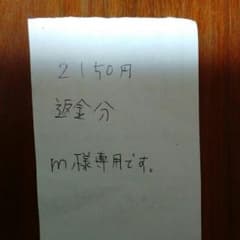 2150円
返金分
m様専用です。